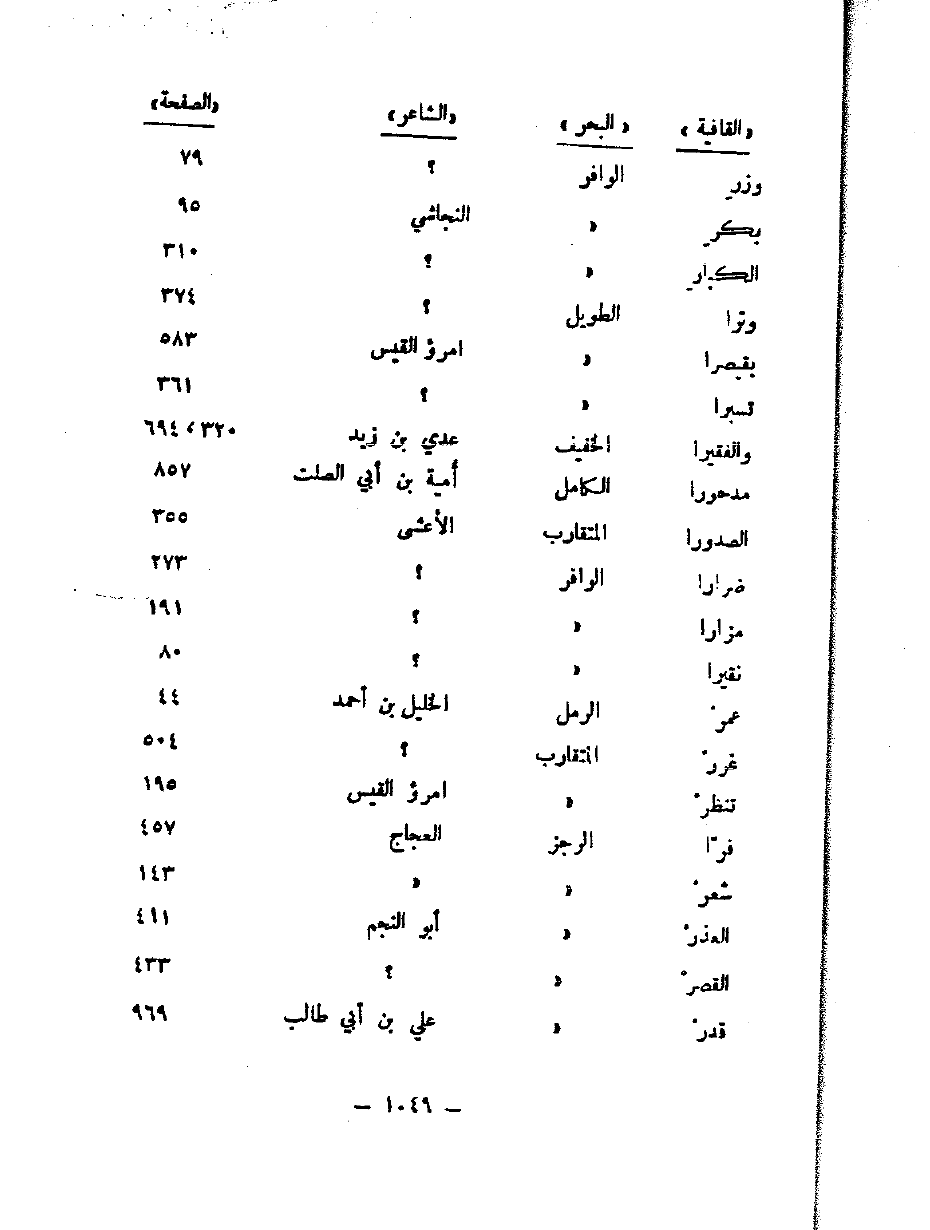 «القافية» «البحر» «الشاعر» «الصفحة»
وزرِ الوافر ؟ ٧٩
بكرِ « النجاشي ٩٥
الكبارِ « ؟ ٣١٠
وترا الطويل ؟ ٣٧٤
بقيصرا « امرؤ القيس ٥٨٣
تسبرا « ؟ ٣٦١
والفقيرا الخفيف عدي بن زيد ٣٢٠ ، ٦٩٤
مدحورا الكامل أمية بن أبي الصلت ٨٥٧
الصدورا المتقارب الأعشى ٣٥٥
ضرارا الوافر ؟ ٢٧٣
مزارا « ؟ ١٩١
نقيرا « ؟ ٨٠
عمرْ الرمل الخليل بن أحمد ٤٤
غررْ المتقارب ؟ ٥٠٤
تنظرْ « امرؤ القيس ١٩٥
فرّا الرجز العجاج ٤٥٧
شعرْ « « ١٤٣
العذرْ « أبو النجم ٤١١
القصرْ « ؟ ٤٣٣
قدرْ « علي بن أبي طالب ٩٦٩
– ١٠٤٩ –